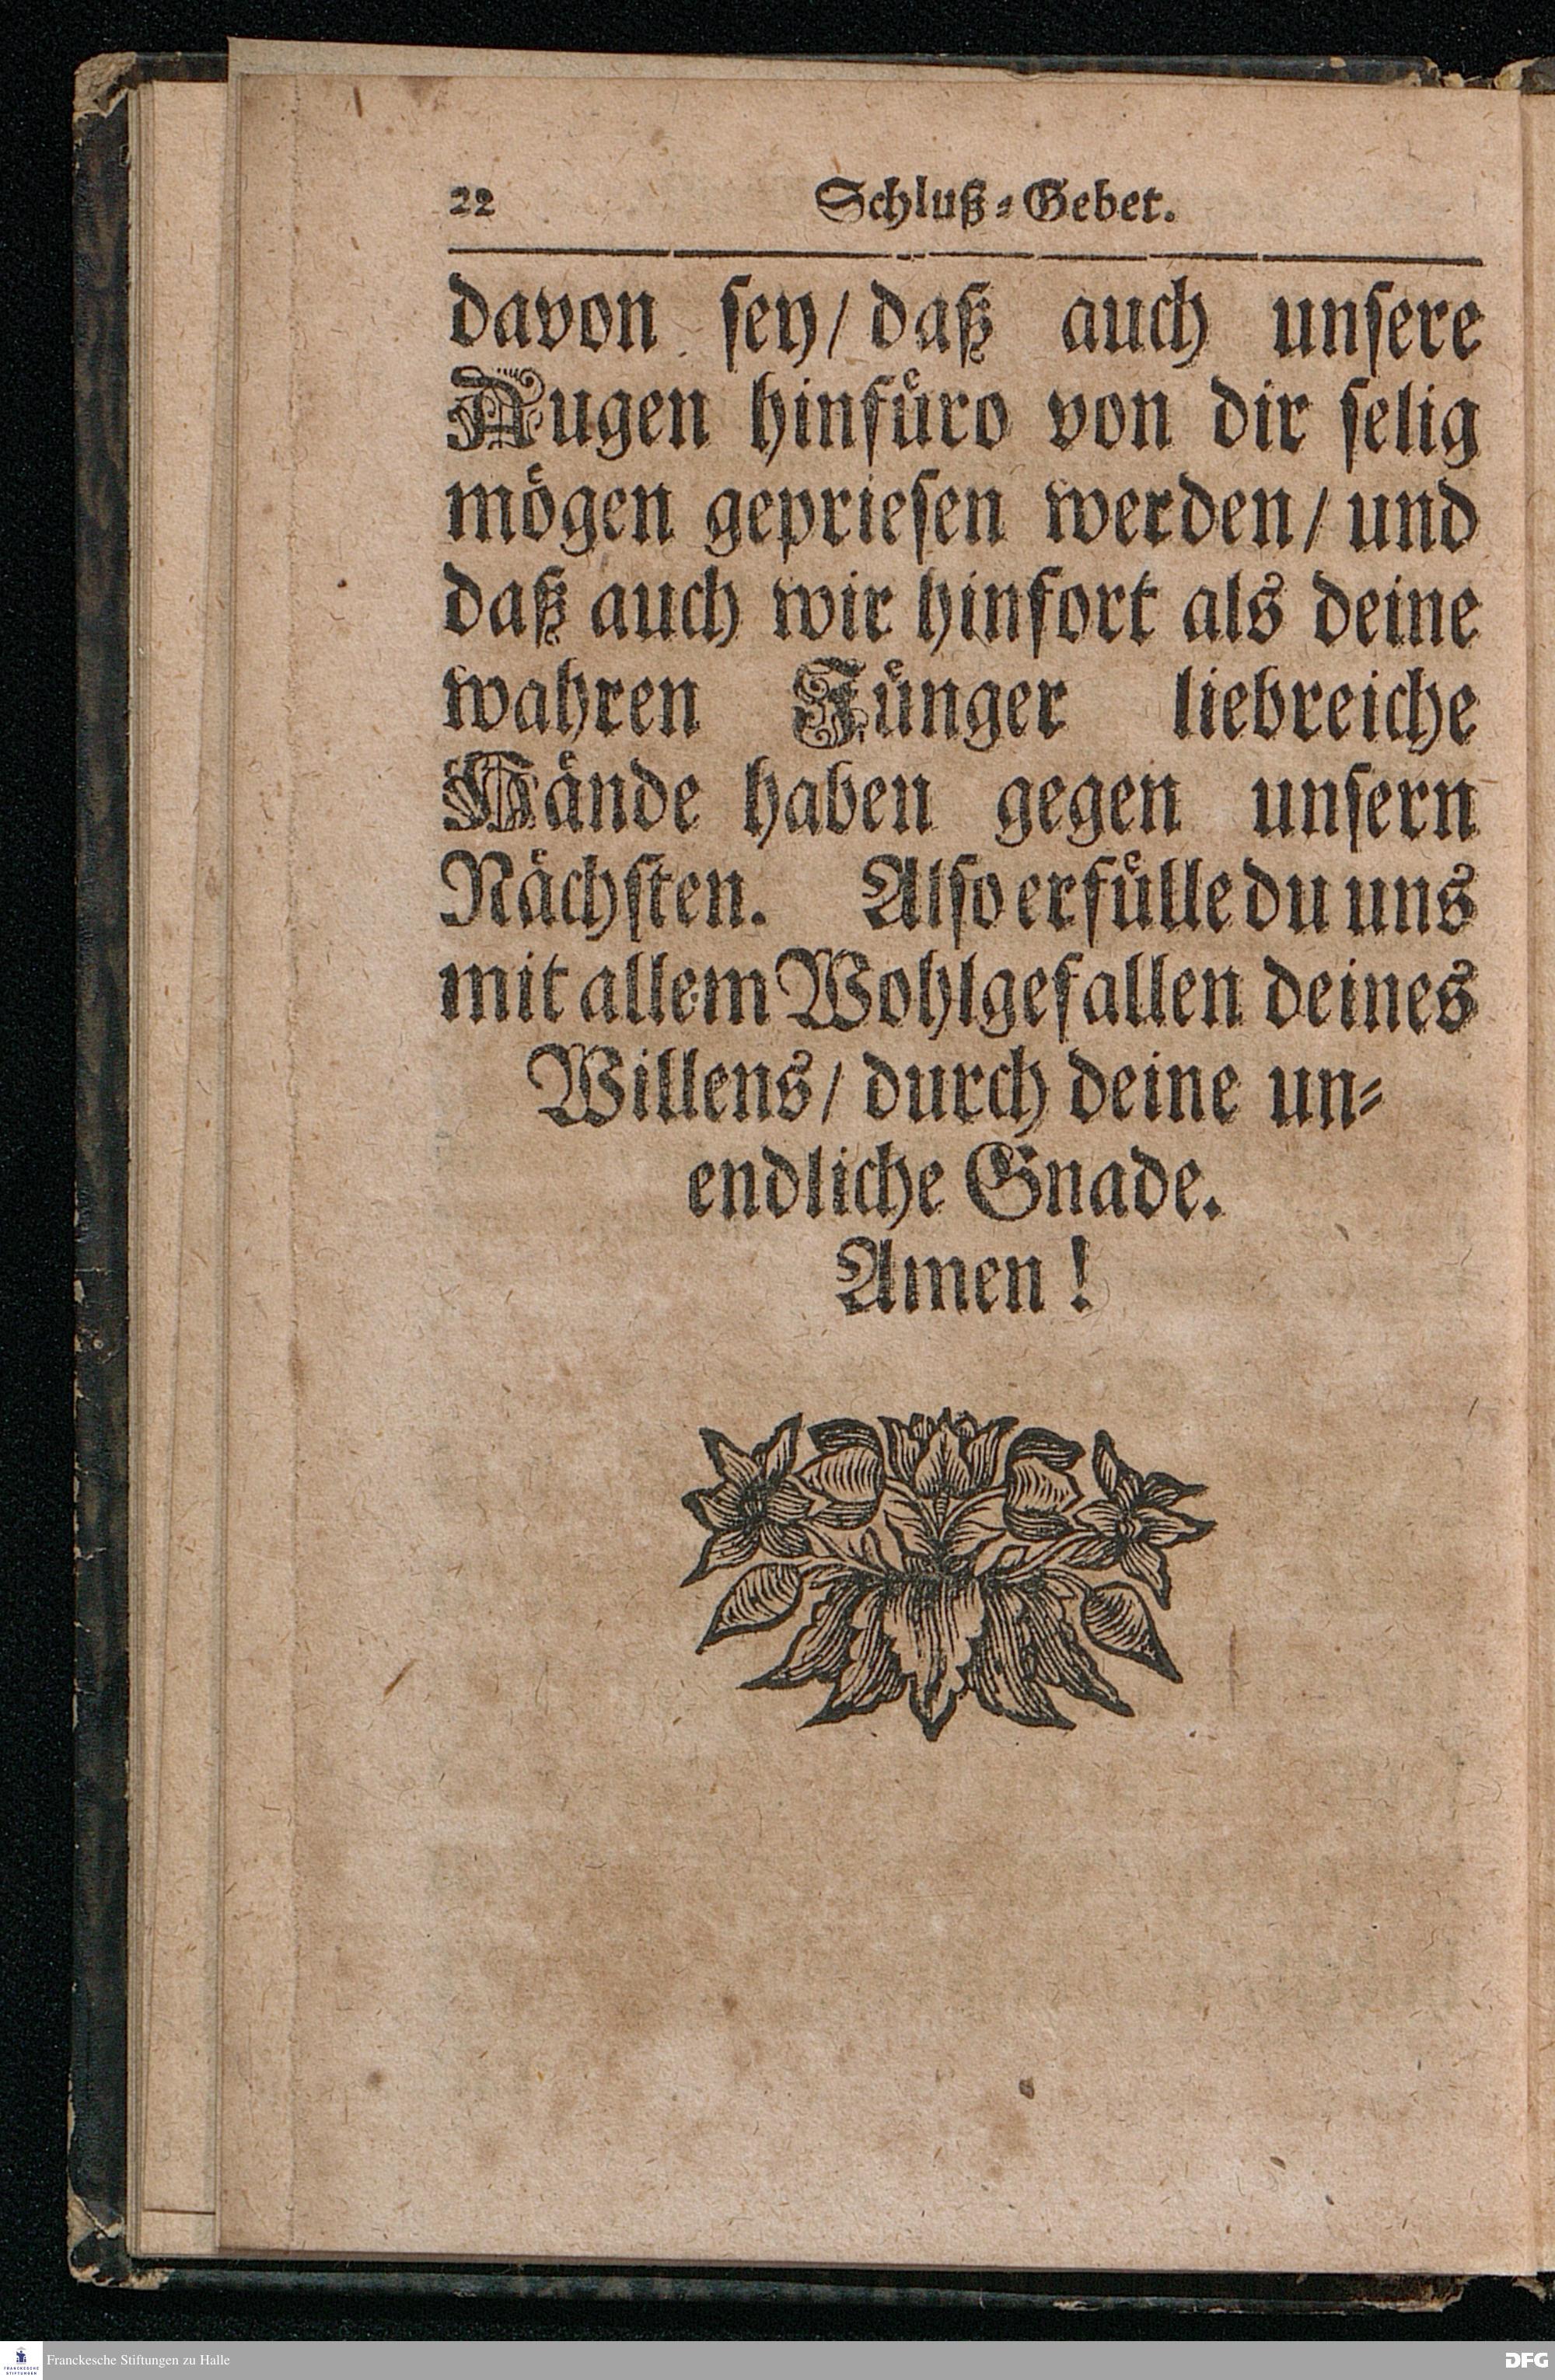 22 Schluß-Gebet.
davon sey/ daß auch unsere
Augen hinfüro von dir selig
mögen gepriesen werden/ und
daß auch wir hinfort als deine
wahren Jünger liebreiche
Hände haben gegen unsern
Nächsten. Also erfülle du uns
mit allem Wohlgefallen deines
Willens/ durch deine un-
endliche Gnade.
Amen!
FRANCKESCHE
STIFTUNGEN
Franckesche Stiftungen zu Halle
DFG